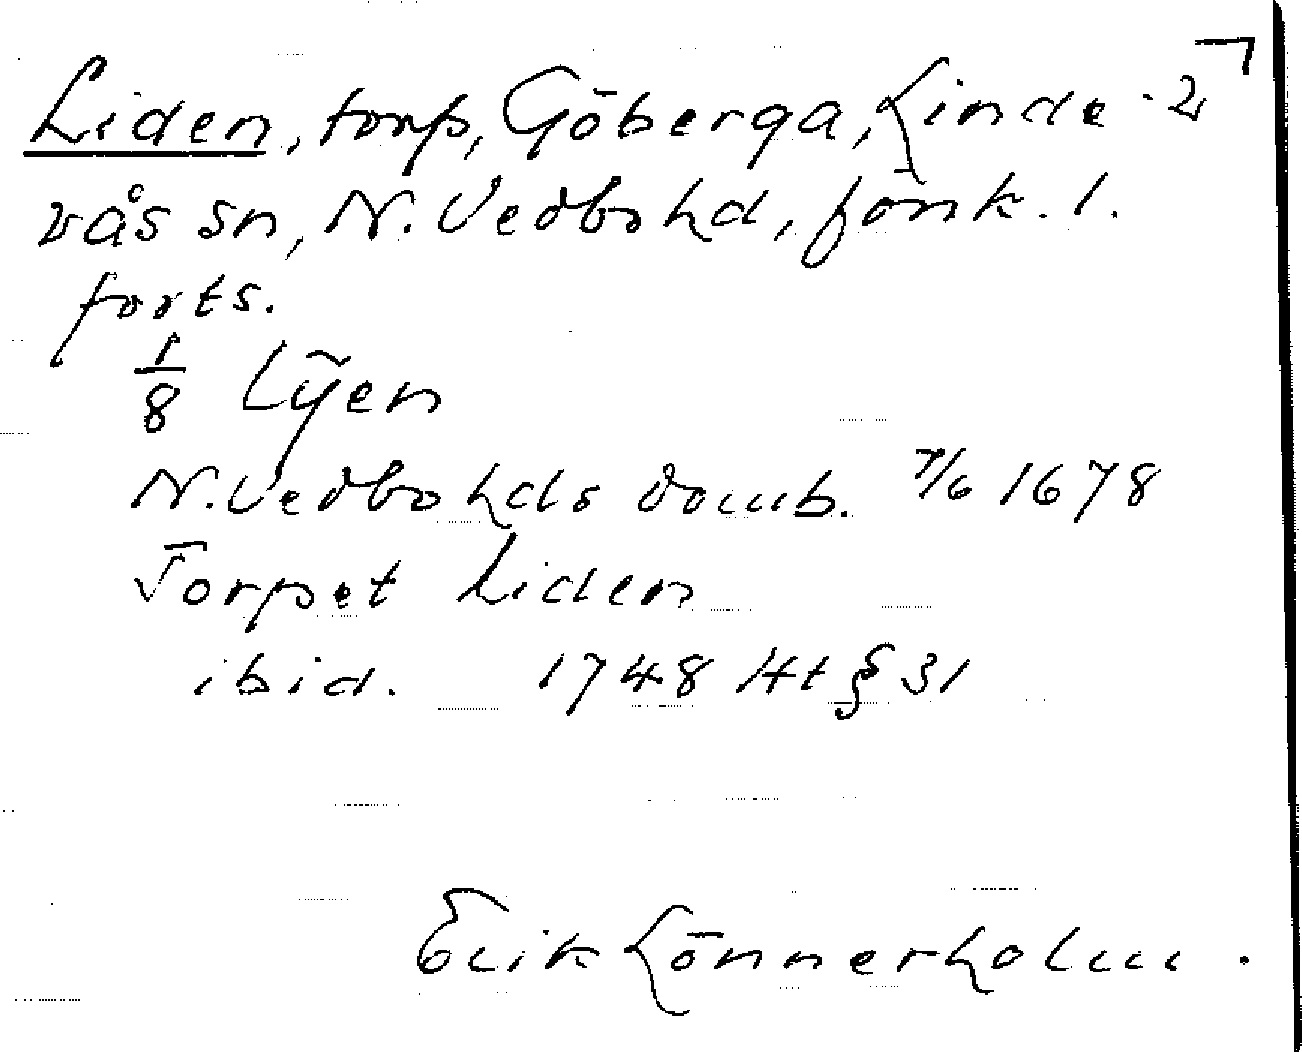 Liden, torp, Göberga, Linde- 2
vås sn, N. Vedbo hd, Jönk. l.
forts.
1/8 Lÿen
N. Vedbo hds domb. 7/6 1678
Torpet Liden
ibid. 1748 Ht § 31
Erik Lönnerholm.